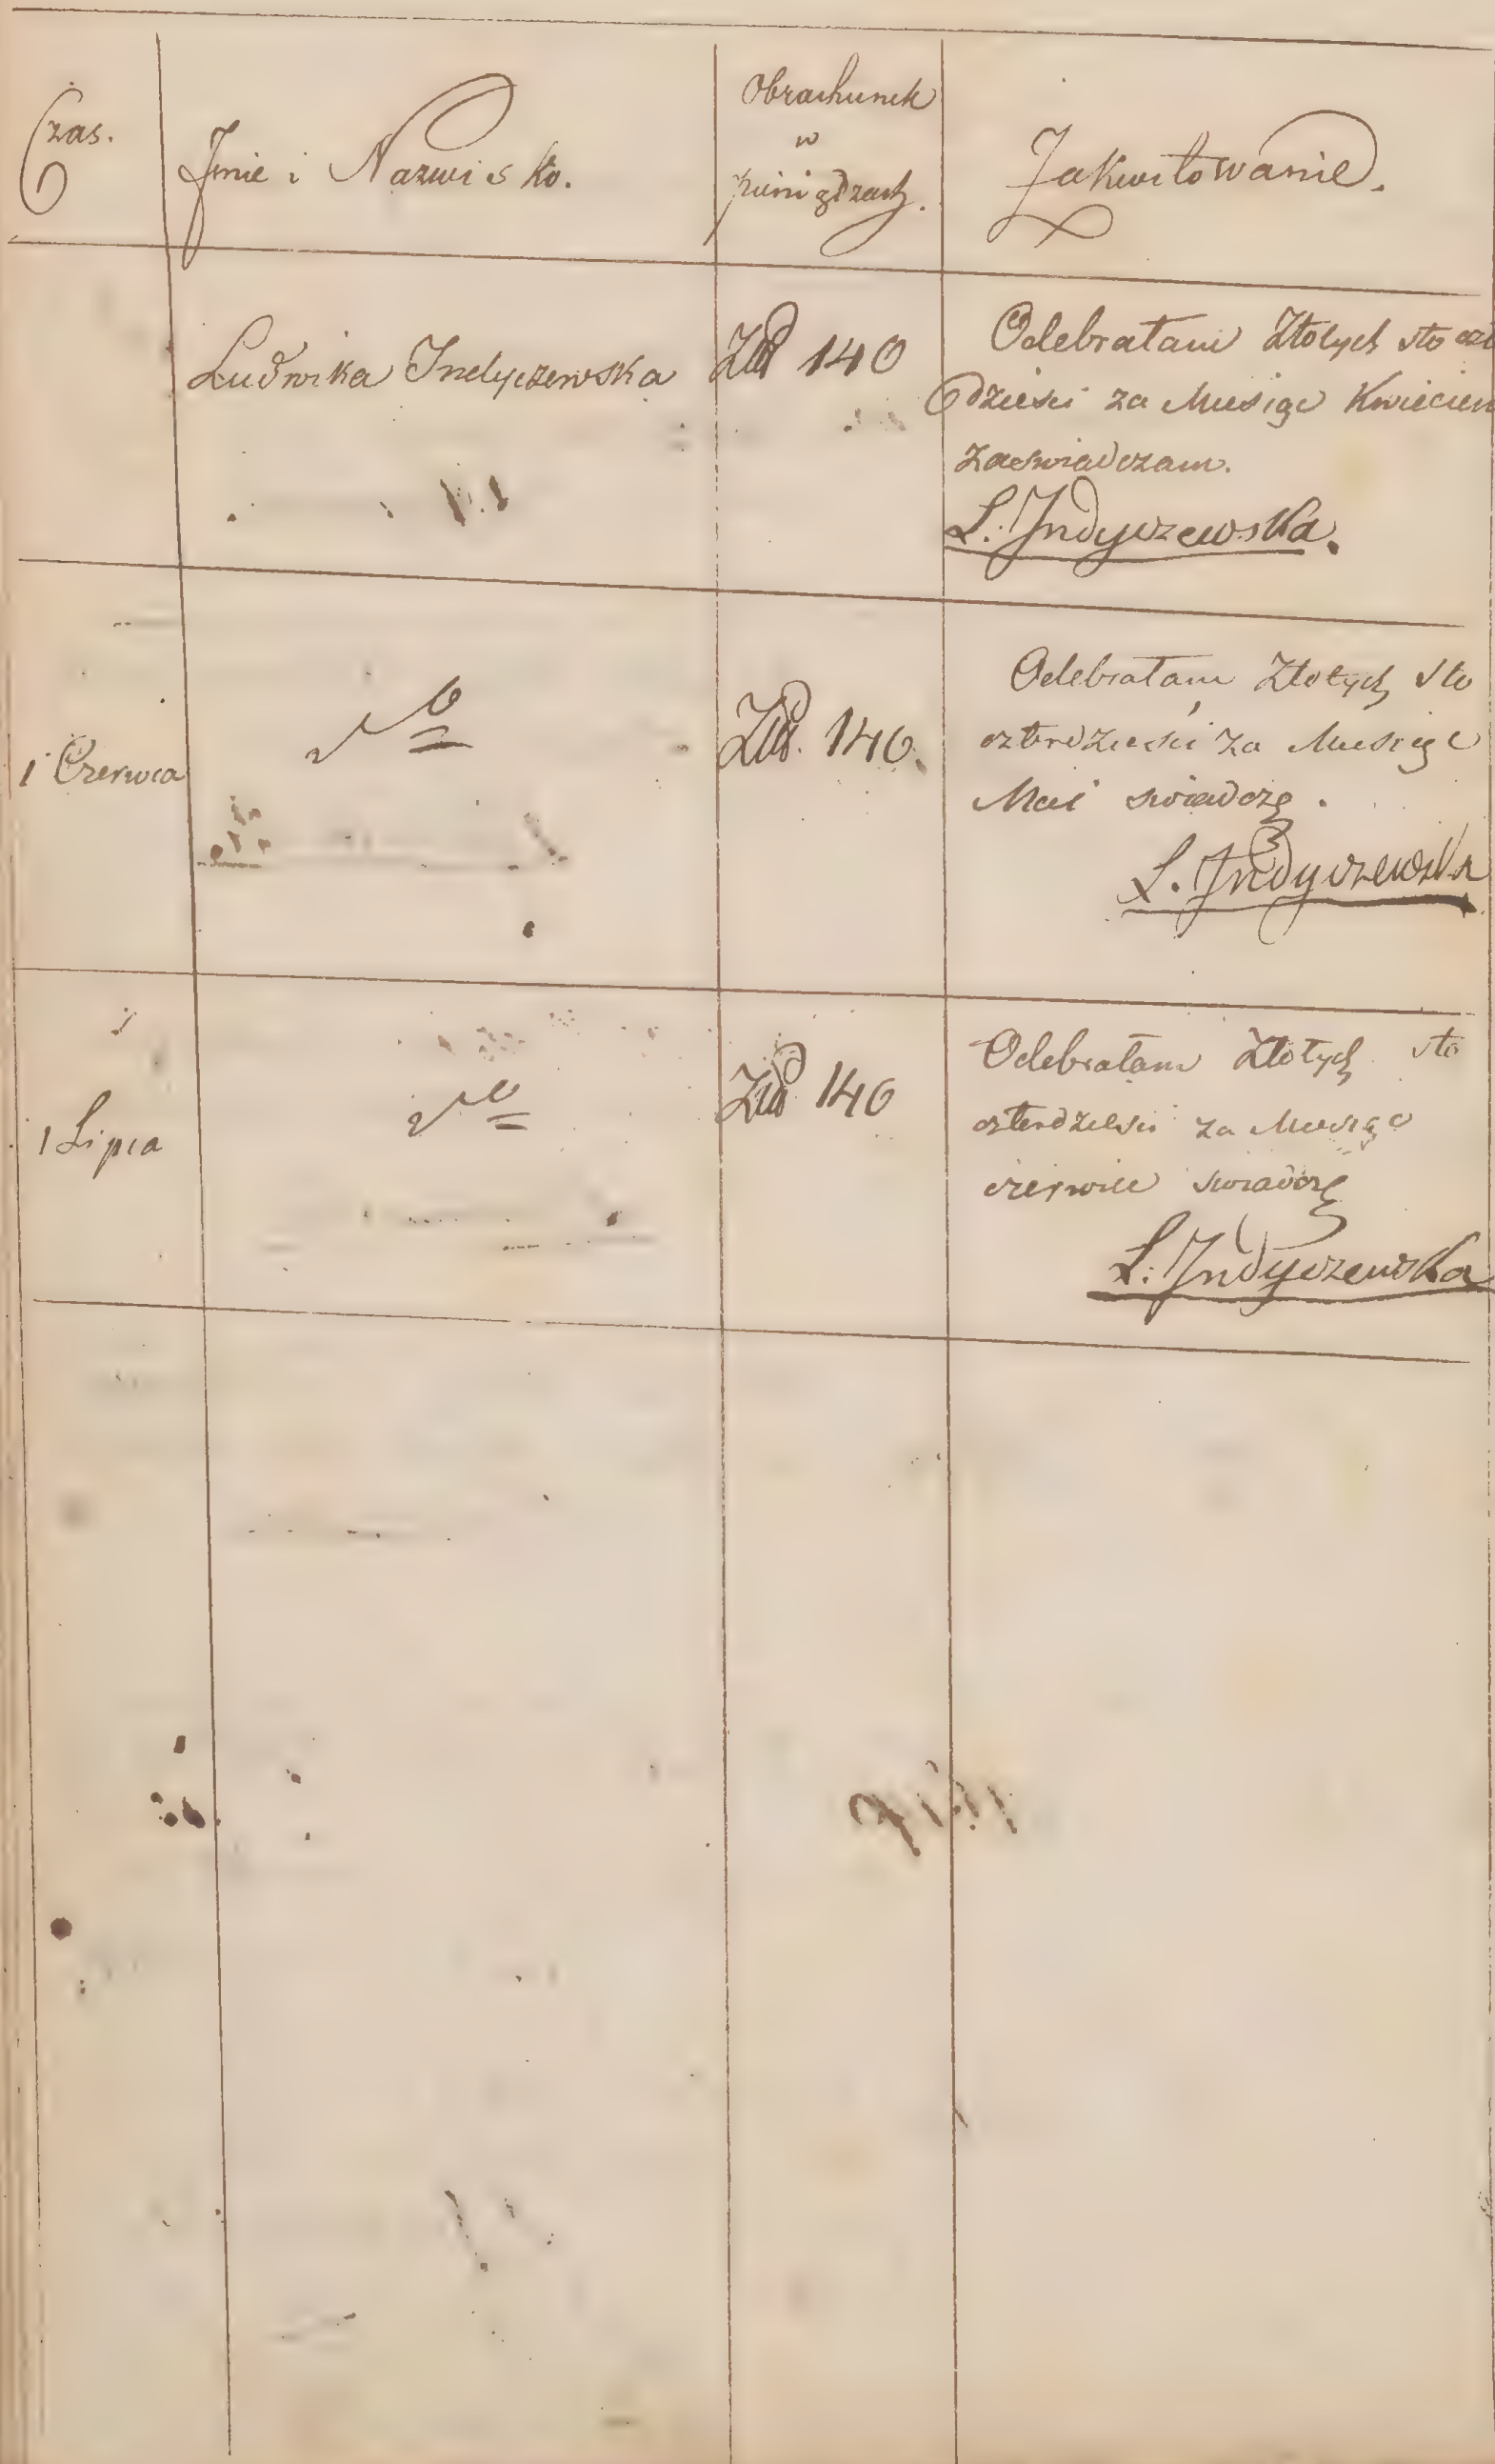 Czas.
Jmie i Nazwisko.
Obrachunek
w
pieniądzach.
Zakwitowanie.
Ludwika Indyczewska
Złp 140
Odebrałam Złotych sto czt
dzieści za Miesiąc Kwiecień
zaświadczam.
L. Indyczewska.
1 Czerwca
Złp. 140.
Odebrałam Złotych sto
czterdzieści za Miesiąc
Mai świadczę.
L. Indyczewska
1 Lipca
Złp 140
Odebrałam Złotych sto
czterdzieści za Miesiąc
czerwiec świadczę
L. Indyczewska